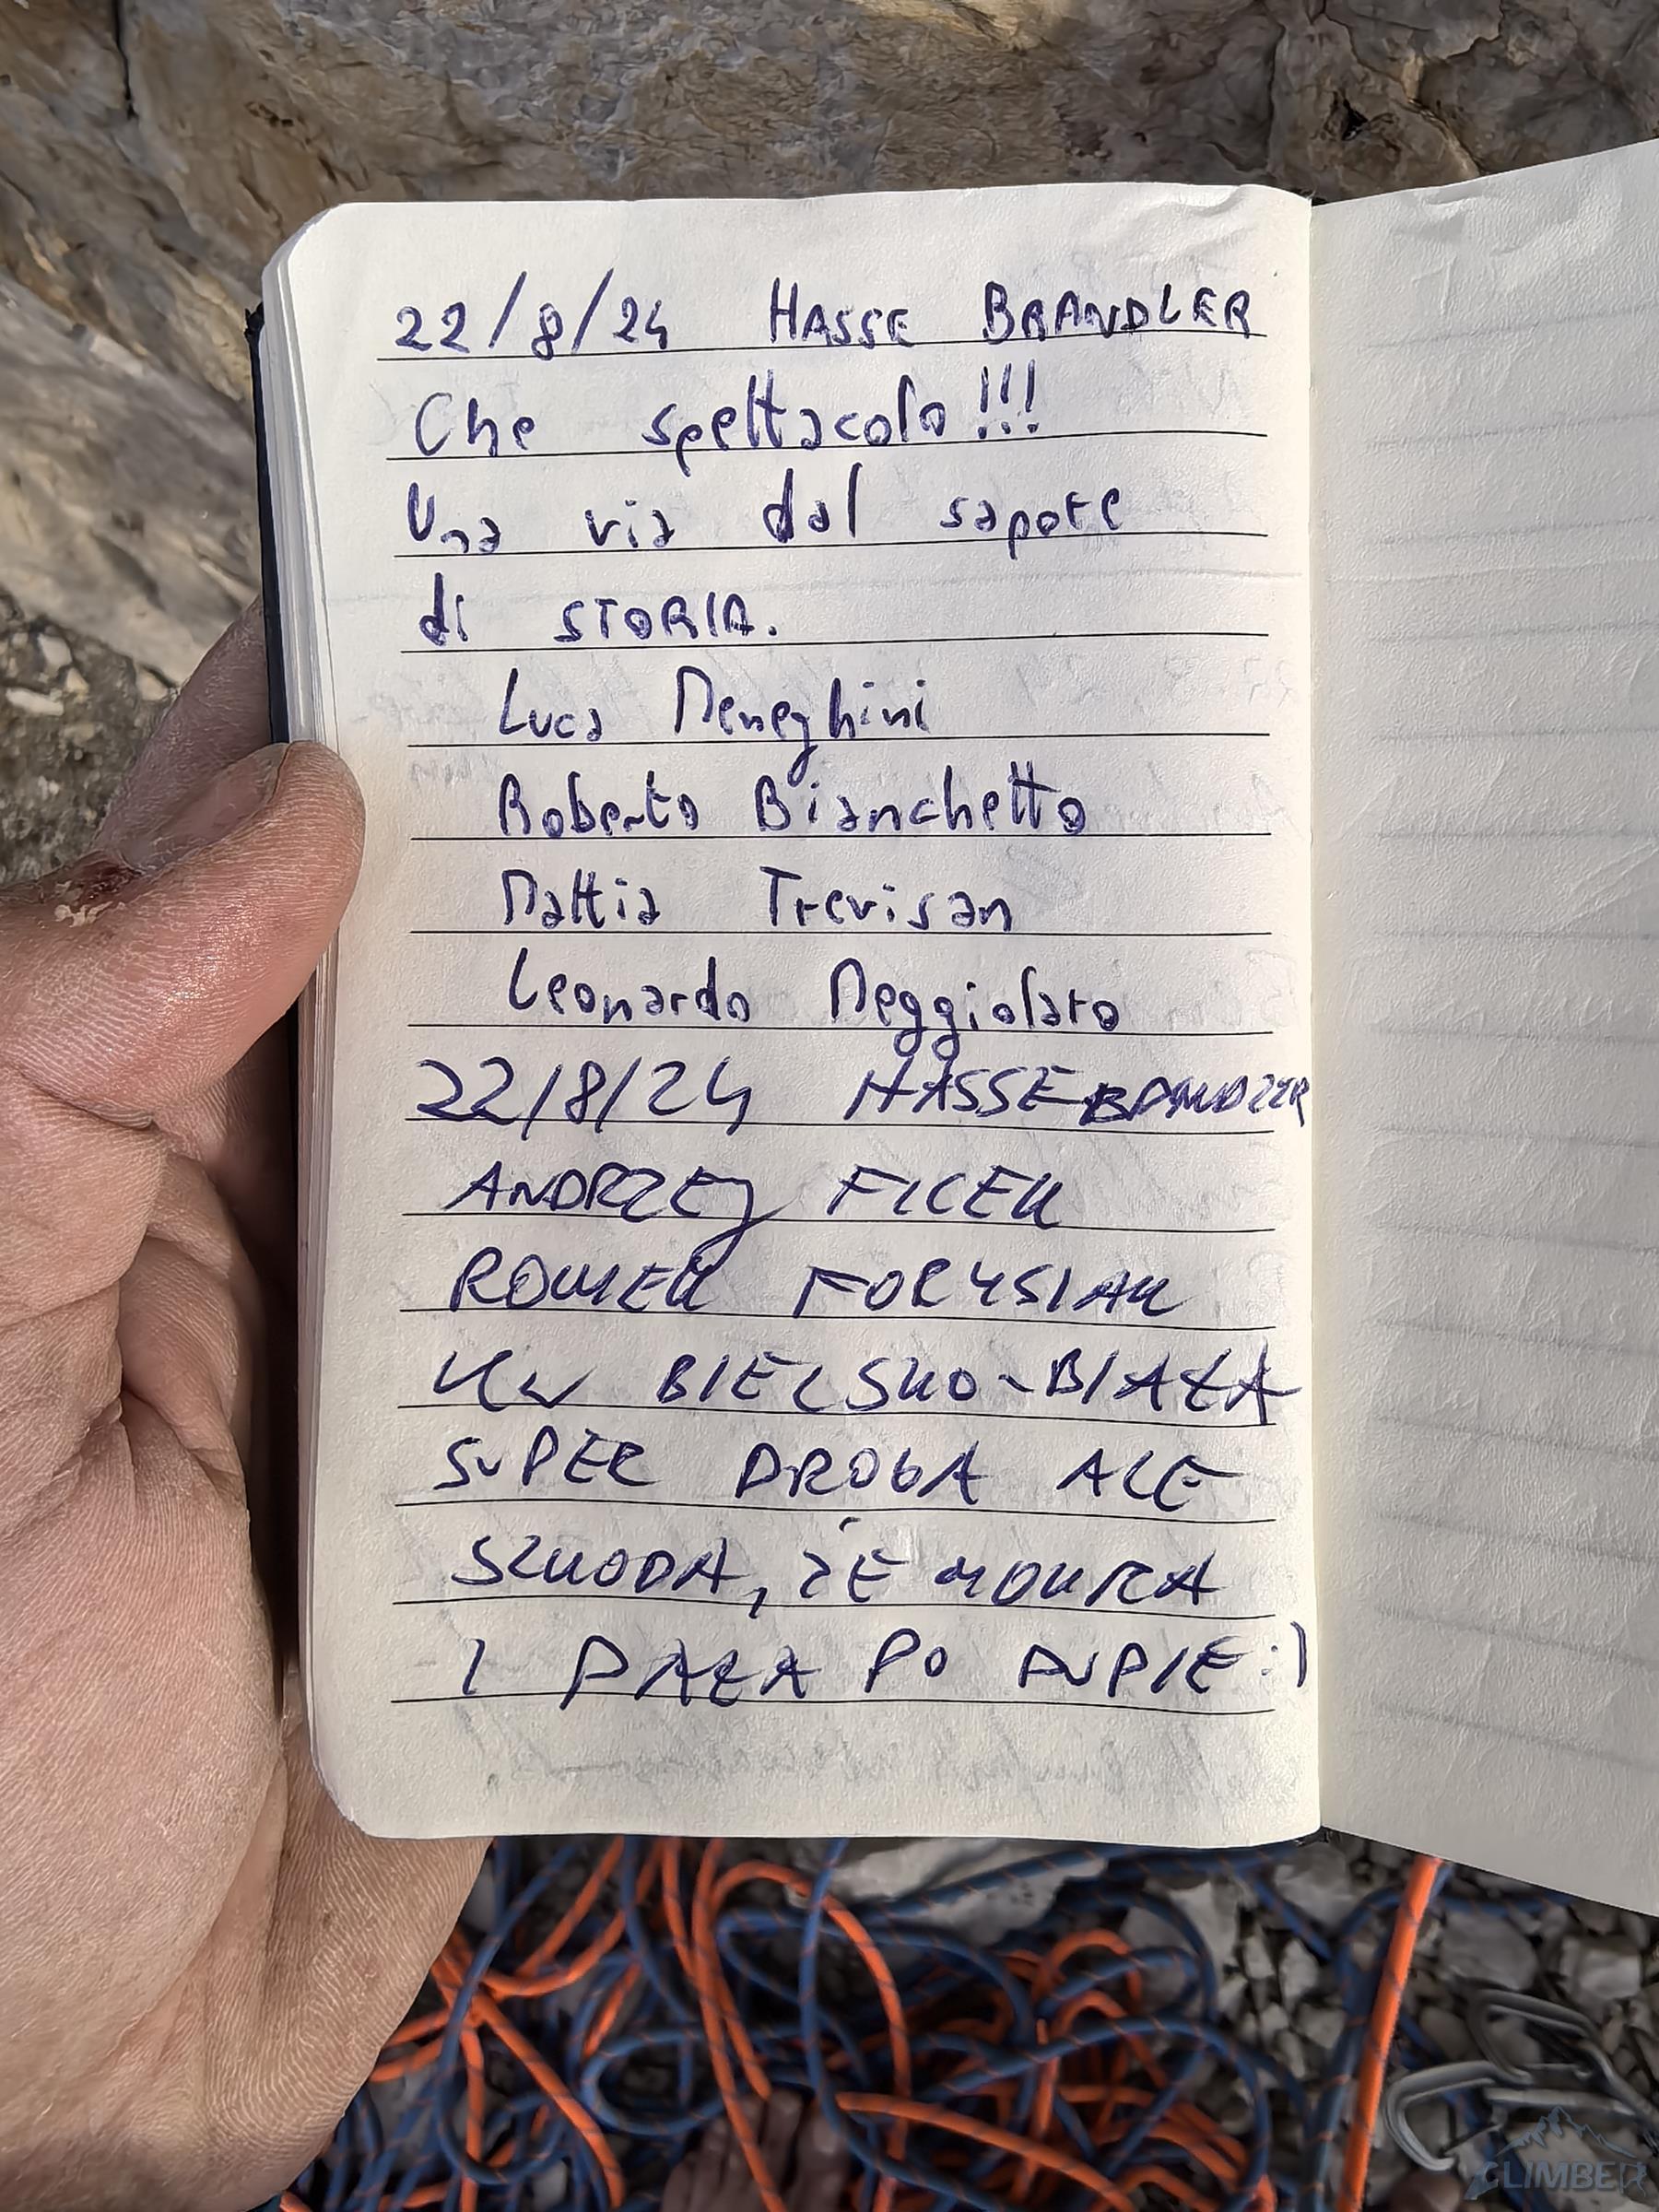 22/8/24 HASSE BRANDLER
Che spettacolo!!!
Una via dal sapore
di STORIA.
Luca Meneghini
Roberto Bianchetto
Mattia Trevisan
Leonardo Meggiolaro
22/8/24 HASSE BRANDLER
ANDRZEJ FICEK
ROMEK FORYSIAK
KW BIELSKO-BIAŁA
SUPER DROGA ALE
SZKODA, ŻE MOKRA
I DAŁA PO DUPIE :)
CLIMBER